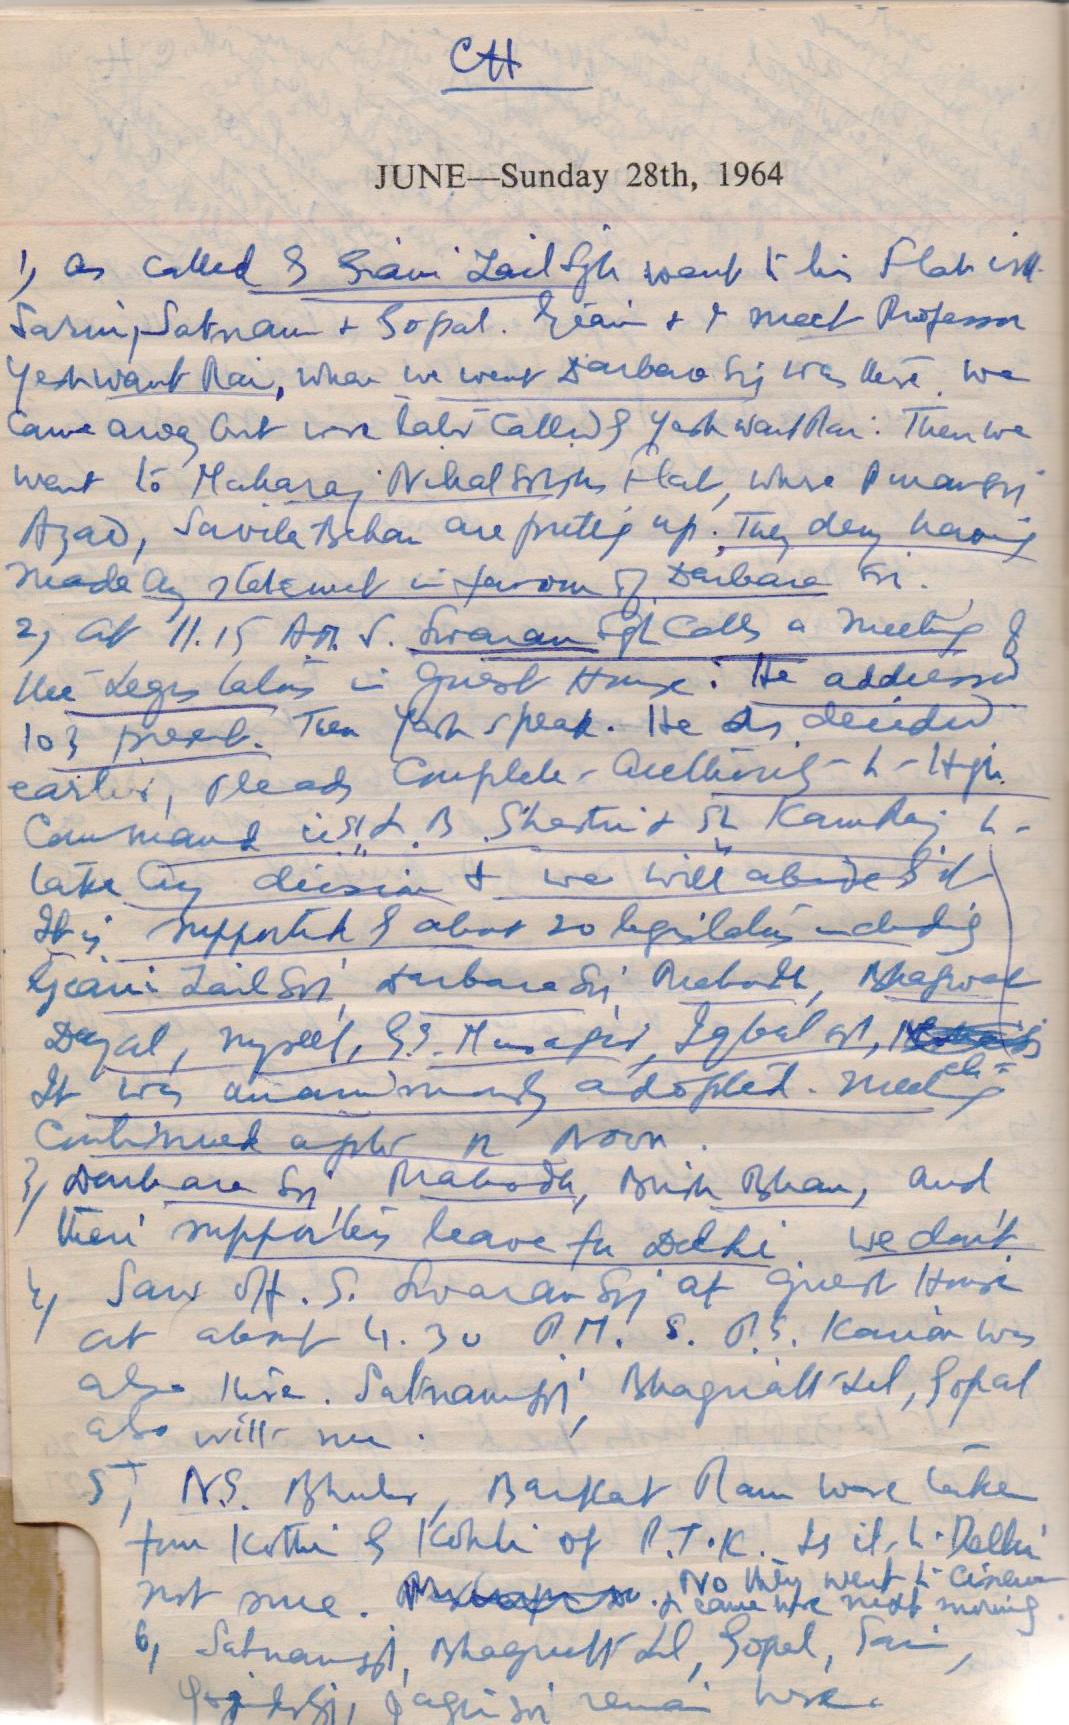 CH
JUNE—Sunday 28th, 1964
1, as called by Giani Zail Sgh went to his Flat with
Sarin, Satnam + Gopal. Giani + I meet Professor
Yeshwant Rai, when we went Darbara Sij was there. we
came away but were later called by Yashwant Rai. Then we
went to Maharaj Nihal Singhs flat, where
Azad, Savita Behan are putting up. They deny having
made any statemet in favour of Darbara Sri.
2, At 11.15 A.M. S. Swaran Sgh Calls a Meeting of
the Legislators in Guest House. He addressed
103 present. Then Yash speak. He as decided
earlier, pleads Complete-Authority-to-High
Command i.e. Sh L. B. Shastri & Sh KamRaj to-
take any decision & we will abide by it
It is supported by about 20 legislators including
Geani Zail Sij, Darbara Sij, Prabodh, Bhagwat
Dayal, myself, G.S. Musafir, Iqbal
It was unanimously adopted. Meeting
continued after 12 Noon.
3, Darbara Sij Prabodh, Brish Bhan, and
their supporters leave for Delhi we don't
4, Saw off. S. Swaran Sij at Guest House
at about 4.30 P.M. S. P.S. Kairon was
also there. Satnam Sij, Bhagirath Lal, Gopal
also with me.
5, N.S. Bhuler, Barkat Ram were taken
from Kothi by Kohli of P.T.K. Is it to Delhi
not sure. No they went to Cinema
& came here next morning.
6, Satnam Sij, Bhagirath Lal, Gopal,
remain here.